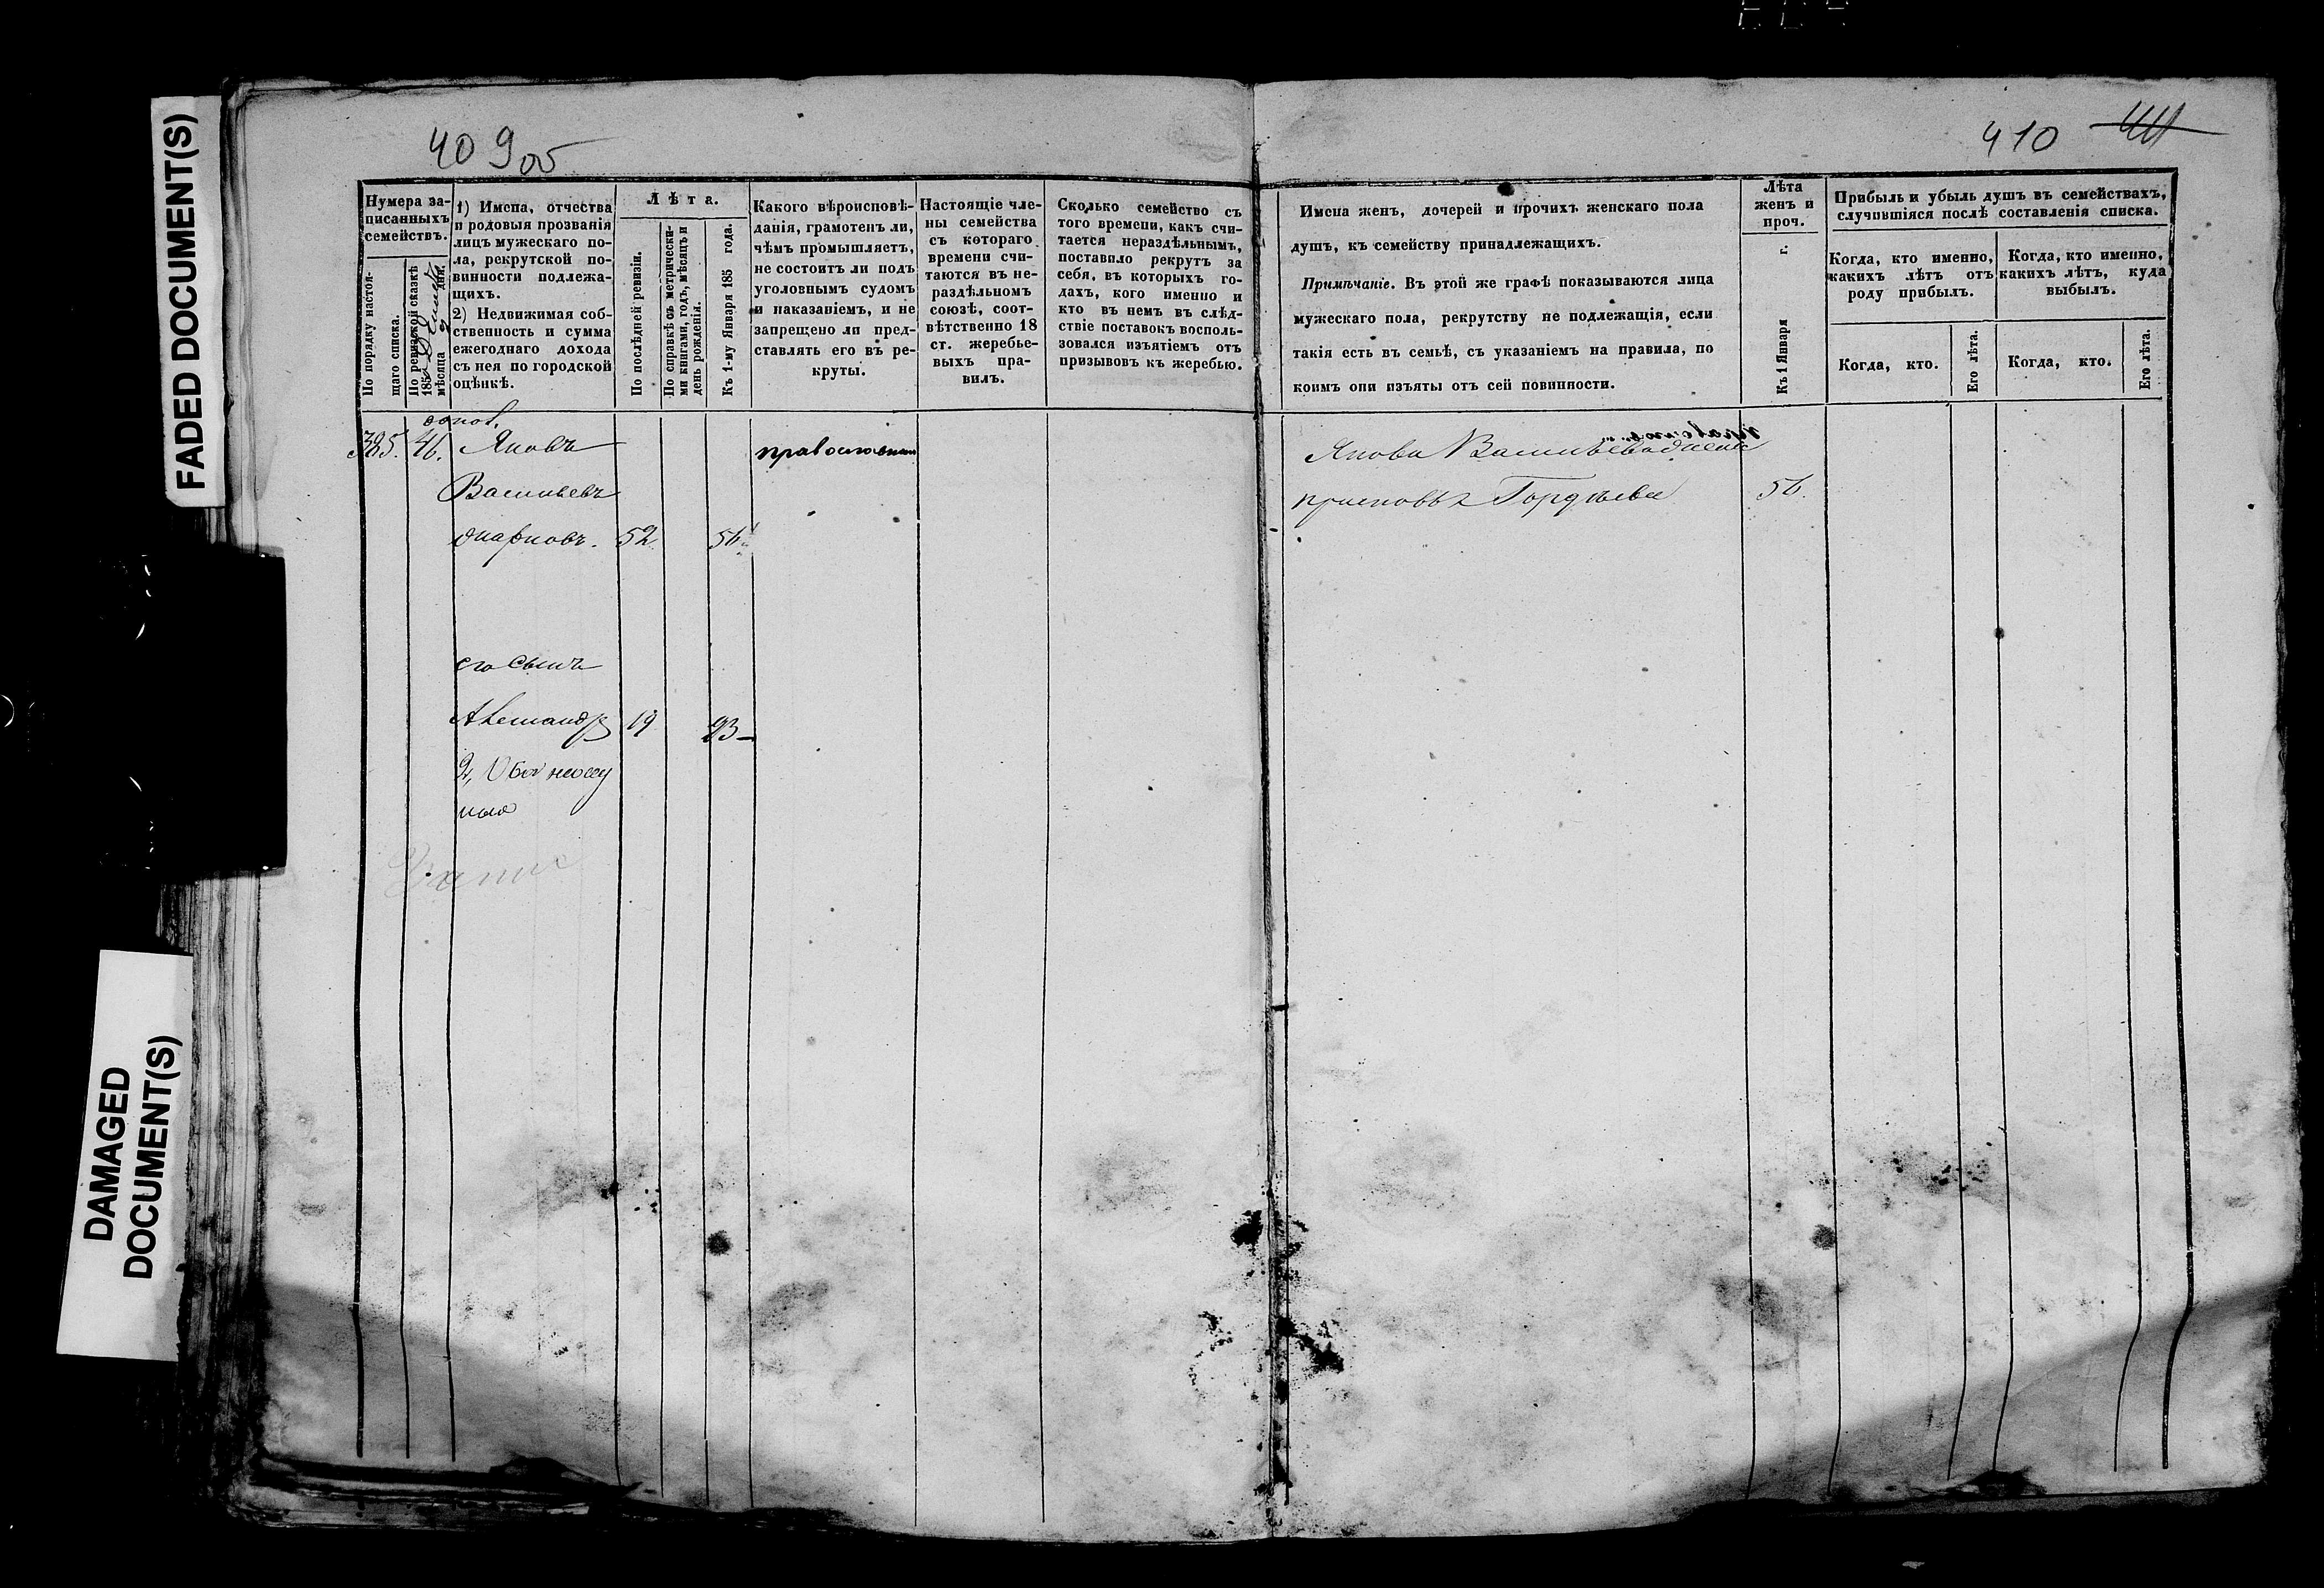 FADED DOCUMENT(S)
DAMAGED
DOCUMENT(S)
409 об
410
Нумера за-
писанныхъ
семействъ.
По порядку настоя-
щаго списка.
По ревизской сказкѣ
185
мѣсяца дня.
1) Имена, отчества
и родовыя прозванія
лицъ мужескаго по-
ла, рекрутской по-
винности подлежа-
щихъ.
2) Недвижимая соб-
ственность и сумма
ежегоднаго дохода
съ нея по городской
оцѣнкѣ.
Лѣта.
По послѣдней ревизіи.
По справкѣ съ метрически-
ми книгами, годъ, мѣсяцъ и
день рожденія.
Къ 1-му Января 185 года.
Какого вѣроисповѣ-
данія, грамотенъ ли,
чѣмъ промышляетъ,
не состоитъ ли подъ
уголовнымъ судомъ
и наказаніемъ, и не
запрещено ли пред-
ставлять его въ ре-
круты.
Настоящіе чле-
ны семейства
съ котораго
времени счи-
таются въ не-
раздѣльномъ
союзѣ, соот-
вѣтственно 18
ст. жеребье-
выхъ пра-
вилъ.
Сколько семейство съ
того времени, какъ счи-
тается нераздѣльнымъ,
поставило рекрутъ за
себя, въ которыхъ го-
дахъ, кого именно и
кто въ немъ въ слѣд-
ствіе поставокъ восполь-
зовался изъятіемъ отъ
призывовъ къ жеребью.
Имена женъ, дочерей и прочихъ женскаго пола
душъ, къ семейству принадлежащихъ.
Примѣчаніе. Въ этой же графѣ показываются лица
мужескаго пола, рекрутству не подлежащія, если
такія есть въ семьѣ, съ указаніемъ на правила, по
коимъ они изъяты отъ сей повинности.
Лѣта
женъ и
проч.
Къ 1 Января г.
Прибыль и убыль душъ въ семействахъ,
случившіяся послѣ составленія списка.
Когда, кто именно,
какихъ лѣтъ отъ
роду прибылъ.
Когда, кто именно,
какихъ лѣтъ, куда
выбылъ.
Когда, кто.
Его лѣта.
Когда, кто.
Его лѣта.
385. 46. Яковъ
Васильевъ
52 56
его сынъ
Александръ 19 23
2,
Якова Васильева жена
Гордѣева 56.